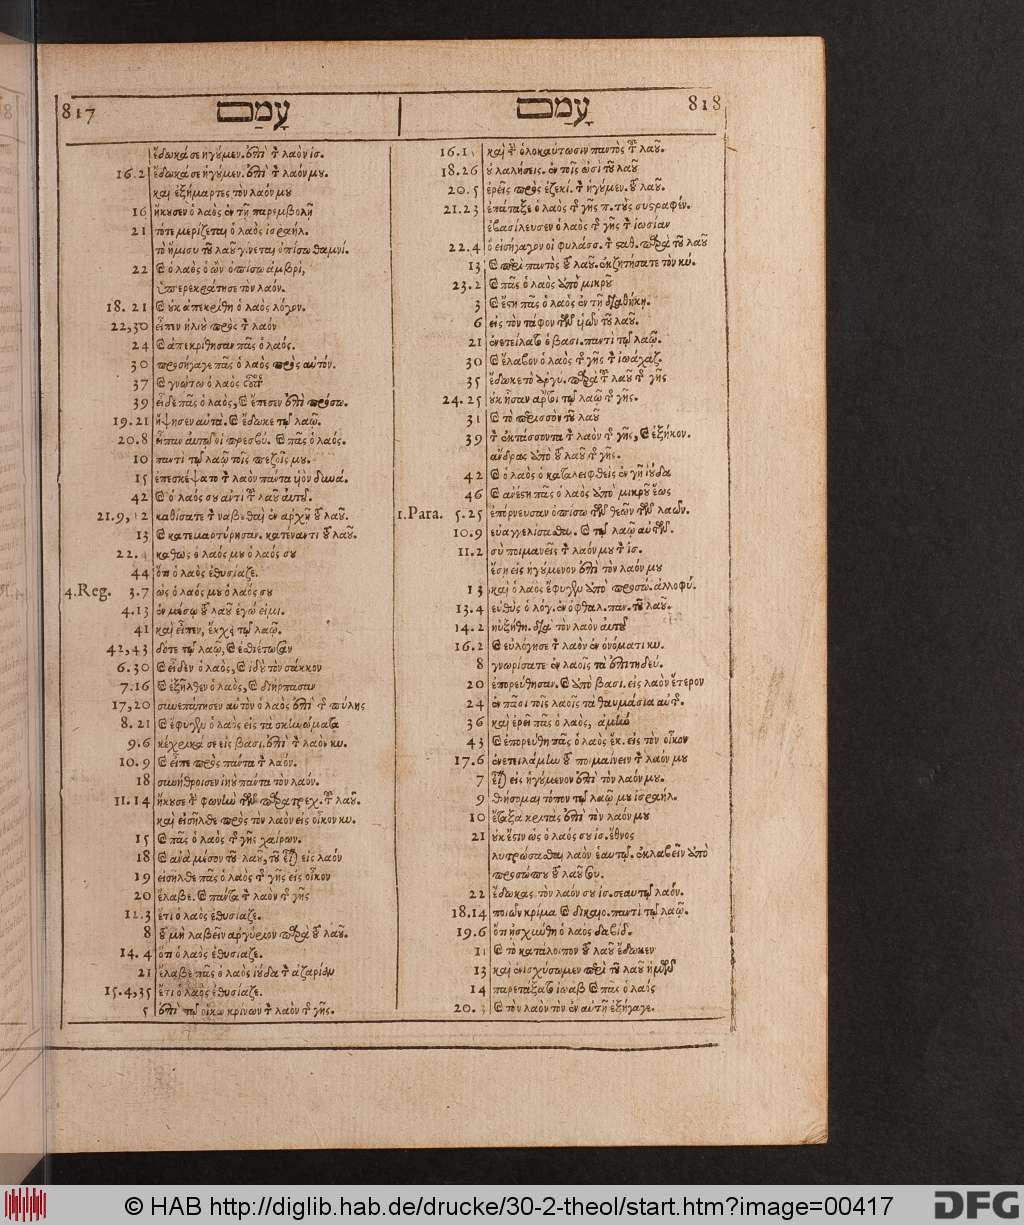 817 עָמַם
ἔδωκά σε ἡγύμεν. ἐπὶ τ̀ λαὸν ἰσ.
16.2 ἔδωκα σε ἡγύμεν. ἐπὶ τ̀ λαόν μου.
καὶ ἐξήμαρτες τὸν λαόν μου
16 ἤκουσεν ὁ λαὸς ἐν τῇ παρεμβολῇ
21 τότε μερίζεται ὁ λαὸς ἰσραήλ.
τὸ ἥμισυ τοῦ λαοῦ γίνεται ὀπίσω θαμνί.
22 καὶ ὁ λαὸς ὁ ὢν ὀπίσω ἀμβρὶ,
ὑπερεκράτησε τὸν λαόν.
18. 21 καὶ οὐκ ἀπεκρίθη ὁ λαὸς λόγον.
22,30 εἶπεν ἠλιοὺ πρὸς τ̀ λαόν
24 καὶ ἀπεκρίθησαν πᾶς ὁ λαός.
30 προσήγαγε πᾶς ὁ λαὸς πρὸς αὐτόν.
37 καὶ γνώτω ὁ λαὸς οὗτος
39 εἶδε πᾶς ὁ λαὸς, καὶ ἔπεσεν ἐπὶ πρόσω.
19. 21 ἥψησεν αὐτὰ. καὶ ἔδωκε τῷ λαῷ.
20.8 εἶπαν αὐτῷ οἱ πρεσβύ. καὶ πᾶς ὁ λαός.
10 παντὶ τῷ λαῷ τοῖς πεζοῖς μου.
15 ἐπεσκέψατο τ̀ λαὸν πάντα υἱὸν δυνά.
42 καὶ ὁ λαός σου ἀντὶ τοῦ λαοῦ αὐτοῦ.
21.9, 12 καθίσατε τ̀ ναβουθαὶ ἐν ἀρχῇ τοῦ λαοῦ.
13 καὶ κατεμαρτύρησαν. κατέναντι τοῦ λαοῦ.
22. καθὼς ὁ λαός μου ὁ λαός σου
44 ὅτι ὁ λαὸς ἐθυσίαζε.
4.Reg. 3.7 ὡς ὁ λαός μου ὁ λαός σου
4.13 ἐν μέσῳ τοῦ λαοῦ ἐγώ εἰμι.
41 καὶ εἶπεν, ἔκχει τῷ λαῷ.
42,43 δότε τῷ λαῷ, καὶ ἐσθιέτωσαν
6.30 καὶ εἶδεν ὁ λαὸς, καὶ ἰδοὺ τὸν σάκκον
7.16 καὶ ἐξῆλθεν ὁ λαὸς, καὶ διήρπασαν
17,20 συνεπάτησεν αὐτὸν ὁ λαὸς ἐπὶ τ̃ πύλης
8. 21 καὶ ἔφυγεν ὁ λαὸς εἰς τὰ σκηνώματα
9.6 κέχρικά σε εἰς βασι. ἐπὶ τ̀ λαὸν κυ.
10. 9 καὶ εἶπε πρὸς πάντα τ̀ λαόν.
18 συνήθροισεν ἰηοὺ πάντα τὸν λαόν.
11. 14 ἤκουσε τ̀ φωνὴν τῶν παρατρεχ. τοῦ λαοῦ.
καὶ εἰσῆλθε πρὸς τὸν λαὸν εἰς οἶκον κυ.
15 καὶ πᾶς ὁ λαὸς τῆς γῆς χαίρων.
18 καὶ ἀνὰ μέσον τοῦ λαοῦ, τοῦ εἶναι εἰς λαόν
19 εἰσῆλθε πᾶς ὁ λαὸς τῆς γῆς εἰς οἶκον
20 ἔλαβε. καὶ πάντα τ̀ λαὸν τῆς γῆς
12.3 ἔτι ὁ λαὸς ἐθυσίαζε.
8 τοῦ μὴ λαβεῖν ἀργύριον παρὰ τοῦ λαοῦ.
14. 4 ὅτι ὁ λαὸς ἐθυσίαζε.
21 ἔλαβε πᾶς ὁ λαὸς ἰούδα τ̀ ἀζαρίαν
15.4,35 ἔτι ὁ λαὸς ἐθυσίαζε.
5 ἐπὶ τῷ οἴκῳ κρίνων τ̀ λαὸν τῆς γῆς.
עָמַם 818
16.1 καὶ τ̀ ὁλοκαύτωσιν παντὸς τοῦ λαοῦ.
18.26 οὐ λαλήσεις. ἐν τοῖς ὠσὶ τοῦ λαοῦ
20. 5 ἐρεῖς πρὸς ἐζεκί. τ̀ ἡγύμεν. τοῦ λαοῦ.
21.23 ἐπάταξε ὁ λαὸς τῆς γῆς π. τοὺς συστραφέν.
ἐβασίλευσεν ὁ λαὸς τῆς γῆς τ̀ ἰωσίαν
22.4 ὃ εἰσήγαγον οἱ φυλάσσ. τ̀ σταθ. παρὰ τοῦ λαοῦ
13 καὶ περὶ παντὸς τοῦ λαοῦ. ἐκζητήσατε τὸν κύ.
23.2 καὶ πᾶς ὁ λαὸς ἀπὸ μικροῦ
3 καὶ ἔστη πᾶς ὁ λαὸς ἐν τῇ διαθήκῃ.
6 εἰς τὸν τάφον τῶν υἱῶν τοῦ λαοῦ.
21 ἐνετείλατο ὁ βασι. παντὶ τῷ λαῷ.
30 καὶ ἔλαβον ὁ λαὸς τῆς γῆς τ̀ ἰωάχαζ.
35 ἔδωκε τὸ ἀργύ. παρὰ τοῦ λαοῦ τῆς γῆς
24. 25 οὐκ ἦσαν ἄρτοι τῷ λαῷ τῆς γῆς.
31 καὶ τὸ περισσὸν τοῦ λαοῦ
39 τ̀ ἐκτάσσοντα τ̀ λαὸν τῆς γῆς, καὶ ἑξήκον.
ἄνδρας ἀπὸ τοῦ λαοῦ τῆς γῆς.
42 καὶ ὁ λαὸς ὁ καταλειφθεὶς ἐν γῇ ἰούδα
46 καὶ ἀνέστη πᾶς ὁ λαὸς ἀπὸ μικροῦ ἕως
1.Para. 5.25 ἐπόρνευσαν ὀπίσω τῶν θεῶν τῶν λαῶν.
10.9 εὐαγγελίσασθαι. καὶ τῷ λαῷ αὐτῶν.
11.2 σὺ ποιμανεῖς τ̀ λαόν μου τ̀ ἰσ.
ἔσῃ εἰς ἡγύμενον ἐπὶ τὸν λαόν μου
13 καὶ ὁ λαὸς ἔφυγεν ἀπὸ προσώ. ἀλλοφύ.
13.4 εὐθὺς ὁ λόγ. ἐν ὀφθαλ. παν. τοῦ λαοῦ.
14.2 ηὐξήθη. διὰ τὸν λαὸν αὐτοῦ
16.2 καὶ εὐλόγησε τ̀ λαὸν ἐν ὀνόματι κυ.
8 γνωρίσατε ἐν λαοῖς τὰ ἐπιτηδεύ.
20 ἐπορεύθησαν. καὶ ἀπὸ βασι. εἰς λαὸν ἕτερον
24 ἐν πᾶσι τοῖς λαοῖς τὰ θαυμάσια αὐτοῦ.
36 καὶ ἐρεῖ πᾶς ὁ λαὸς, ἀμήν
43 καὶ ἐπορεύθη πᾶς ὁ λαὸς ἕκ. εἰς τὸν οἶκον
17.6 ἐνετειλάμην τοῦ ποιμαίνειν τ̀ λαόν μου
7 εἶναι εἰς ἡγύμενον ἐπὶ τὸν λαόν μου.
9 θήσομαι τόπον τῷ λαῷ μου ἰσραήλ.
10 ἔταξα κριτὰς ἐπὶ τὸν λαόν μου
21 οὐκ ἔστιν ὡς ὁ λαός σου ἰσ. ἔθνος
λυτρώσασθαι λαὸν ἑαυτῷ. ἐκλαβεῖν ἀπὸ
προσώπου τοῦ λαοῦ σου.
22 ἔδωκας τὸν λαόν σου ἰσ. σεαυτῷ λαόν.
18.14 ποιῶν κρίμα καὶ δικαιο. παντὶ τῷ λαῷ.
19.6 ὅτι ᾐσχύνθη ὁ λαὸς δαβίδ.
11 καὶ τὸ κατάλοιπον τοῦ λαοῦ ἔδωκεν
13 καὶ ἐνισχύσωμεν περὶ τοῦ λαοῦ ἡμῶν
14 παρετάξατο ἰωὰβ καὶ πᾶς ὁ λαός
20. 3 καὶ τὸν λαὸν τὸν ἐν αὐτῇ ἐξήγαγε.
© HAB http://diglib.hab.de/drucke/30-2-theol/start.htm?image=00417
DFG